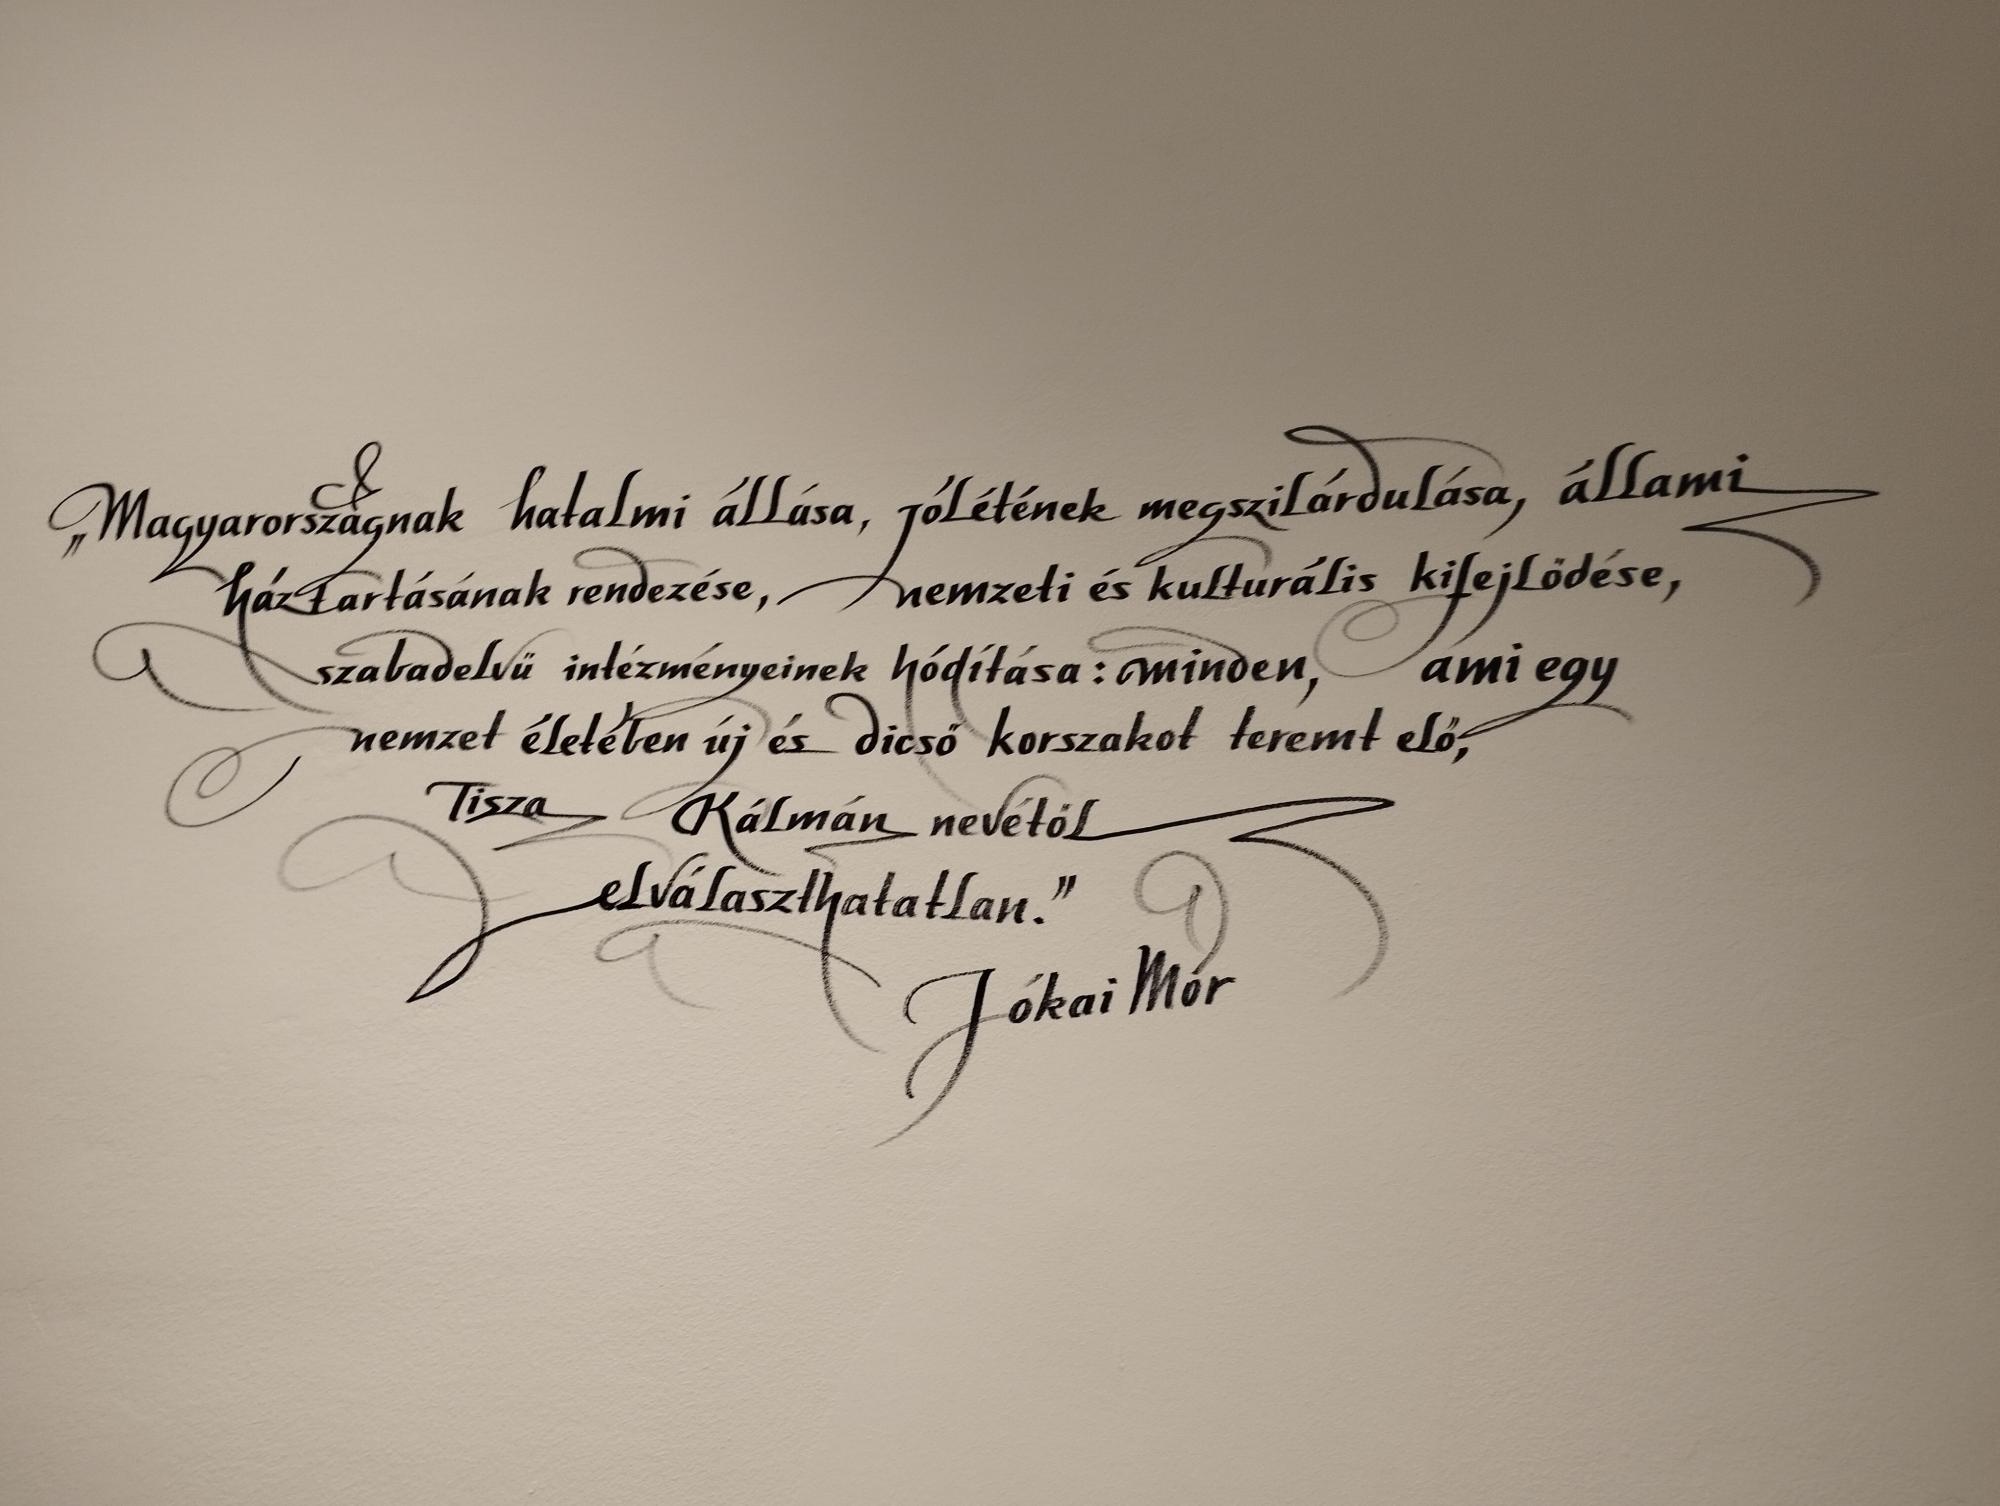 „Magyarországnak hatalmi állása, jólétének megszilárdulása, állami
háztartásának rendezése, nemzeti és kulturális kifejlődése,
szabadelvű intézményeinek hódítása: minden, ami egy
nemzet életében új és dicső korszakot teremt elő,
Tisza Kálmán nevétől
elválaszthatatlan."
Jókai Mór